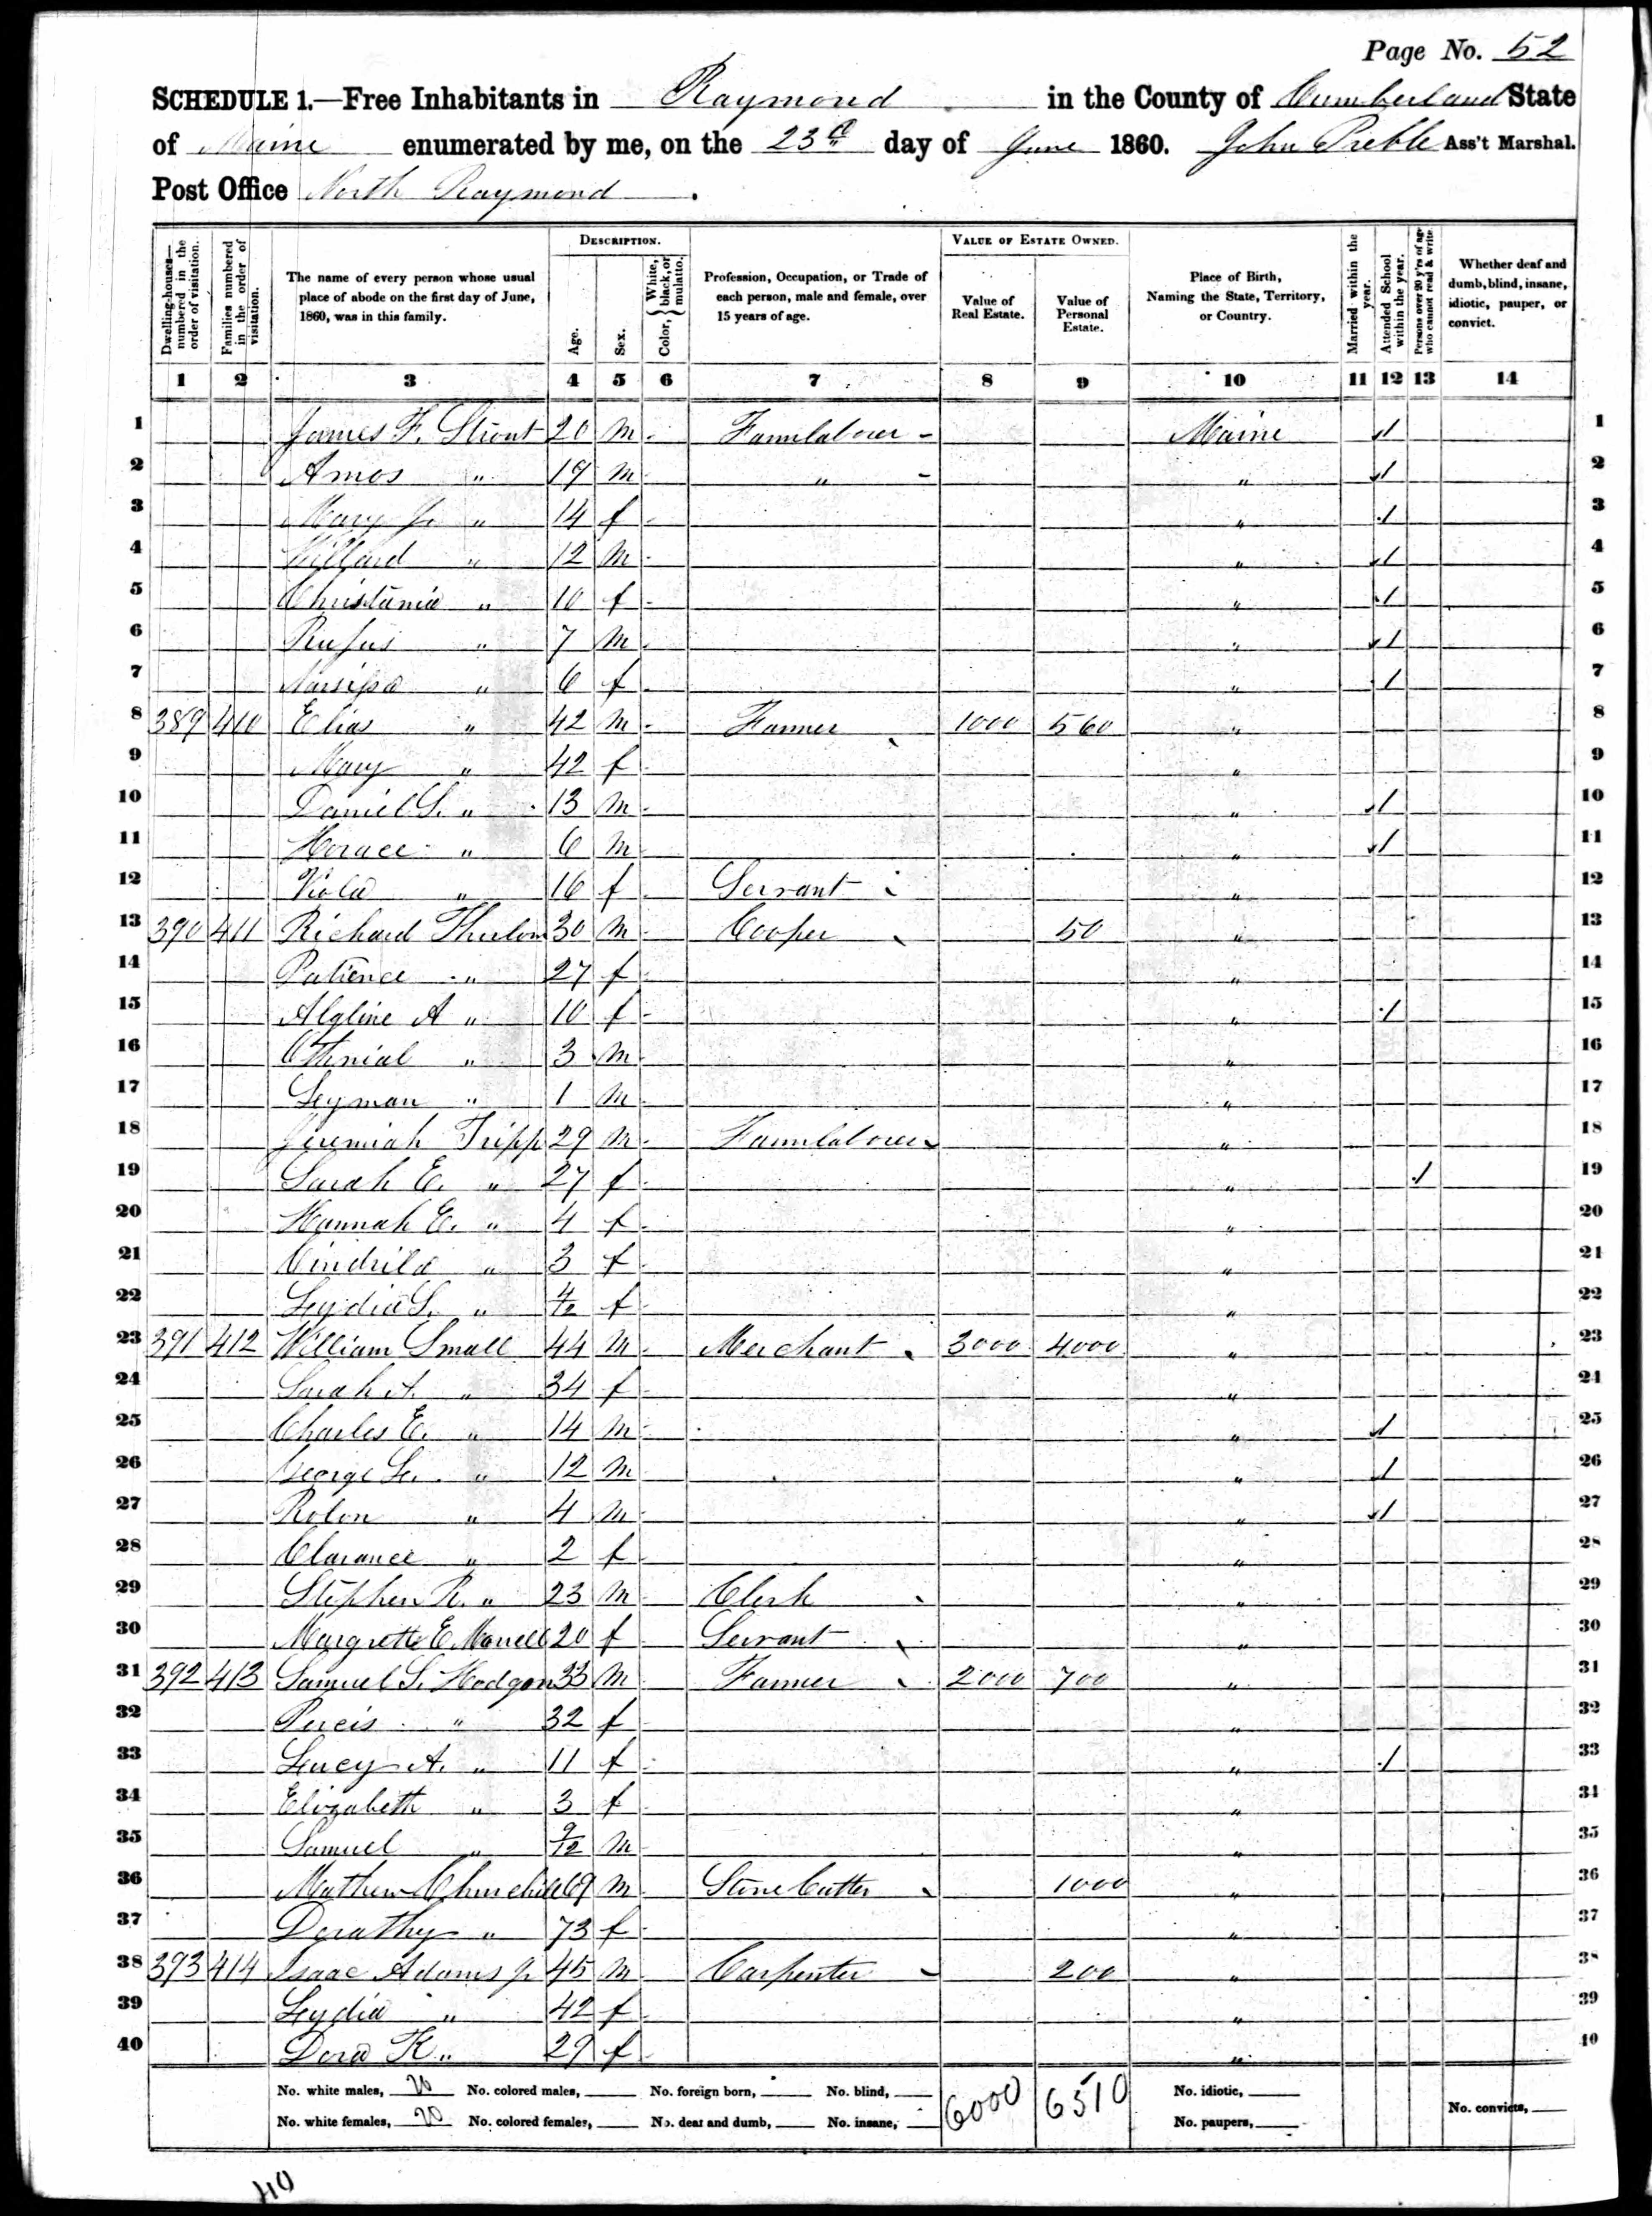 Page No. 52
SCHEDULE 1.—Free Inhabitants in Raymond in the County of Cumberland State
of Maine enumerated by me, on the 23d day of June 1860. John Preble Ass't Marshal.
Post Office North Raymond.
DESCRIPTION. VALUE OF ESTATE OWNED.
Dwelling-houses—numbered in the order of visitation. Families numbered in the order of visitation. The name of every person whose usual place of abode on the first day of June, 1860, was in this family. Age. Sex. Color, {White, black, or mulatto. Profession, Occupation, or Trade of each person, male and female, over 15 years of age. Value of Real Estate. Value of Personal Estate. Place of Birth, Naming the State, Territory, or Country. Married within the year. Attended School within the year. Persons over 20 y'rs of age who cannot read & write. Whether deaf and dumb, blind, insane, idiotic, pauper, or convict.
1 2 3 4 5 6 7 8 9 10 11 12 13 14
1 James F. Strout 20 m Farmlaborer Maine / 1
2 Amos " 19 m " " / 2
3 Mary J. " 14 f " / 3
4 Willard " 12 m " / 4
5 Christania " 10 f " / 5
6 Rufus " 7 m " / 6
7 " 6 f " / 7
8 389 410 Elias " 42 m Farmer 1000 560 " 8
9 Mary " 42 f " 9
10 Daniel S. " 13 m " / 10
11 Horace " 6 m " / 11
12 Viola " 16 f Servant " 12
13 390 411 Richard Thurlow 30 m Cooper 50 " 13
14 Patience " 27 f " 14
15 Algline A " 10 f " / 15
16 Othnial " 3 m " 16
17 Leyman " 1 m " 17
18 Jeremiah Tripp 29 m Farmlaborer " 18
19 Sarah E. " 27 f " / 19
20 Hannah E. " 4 f " 20
21 " 3 f " 21
22 Leydia S. " 4/12 f " 22
23 391 412 William Small 44 m Merchant 3000 4000 " 23
24 Sarah A. " 34 f " 24
25 Charles E. " 14 m " / 25
26 George " 12 m " / 26
27 Rolon " 4 m " / 27
28 Clarance " 2 f " 28
29 Stephen R. " 23 m Clerk " 29
30 Margrette E 20 f Servant " 30
31 392 413 Samuel S. Hodgon 33 m Farmer 2000 700 " 31
32 Percis " 32 f " 32
33 Lucy A. " 11 f " / 33
34 Elizabeth " 3 f " 34
35 Samuel " 9/12 m " 35
36 Mathew Churchill 69 m Stone Cutter 1000 " 36
37 Dorathy " 73 f " 37
38 393 414 Isaac Adams jr 45 m Carpenter 200 " 38
39 Leydia " 42 f " 39
40 Dora K. " 29 f " 40
No. white males, 20 No. colored males, No. foreign born, No. blind, 6000 6510 No. idiotic,
No. white females, 20 No. colored females, No. deaf and dumb, No. insane, No. paupers, No. convicts,
40